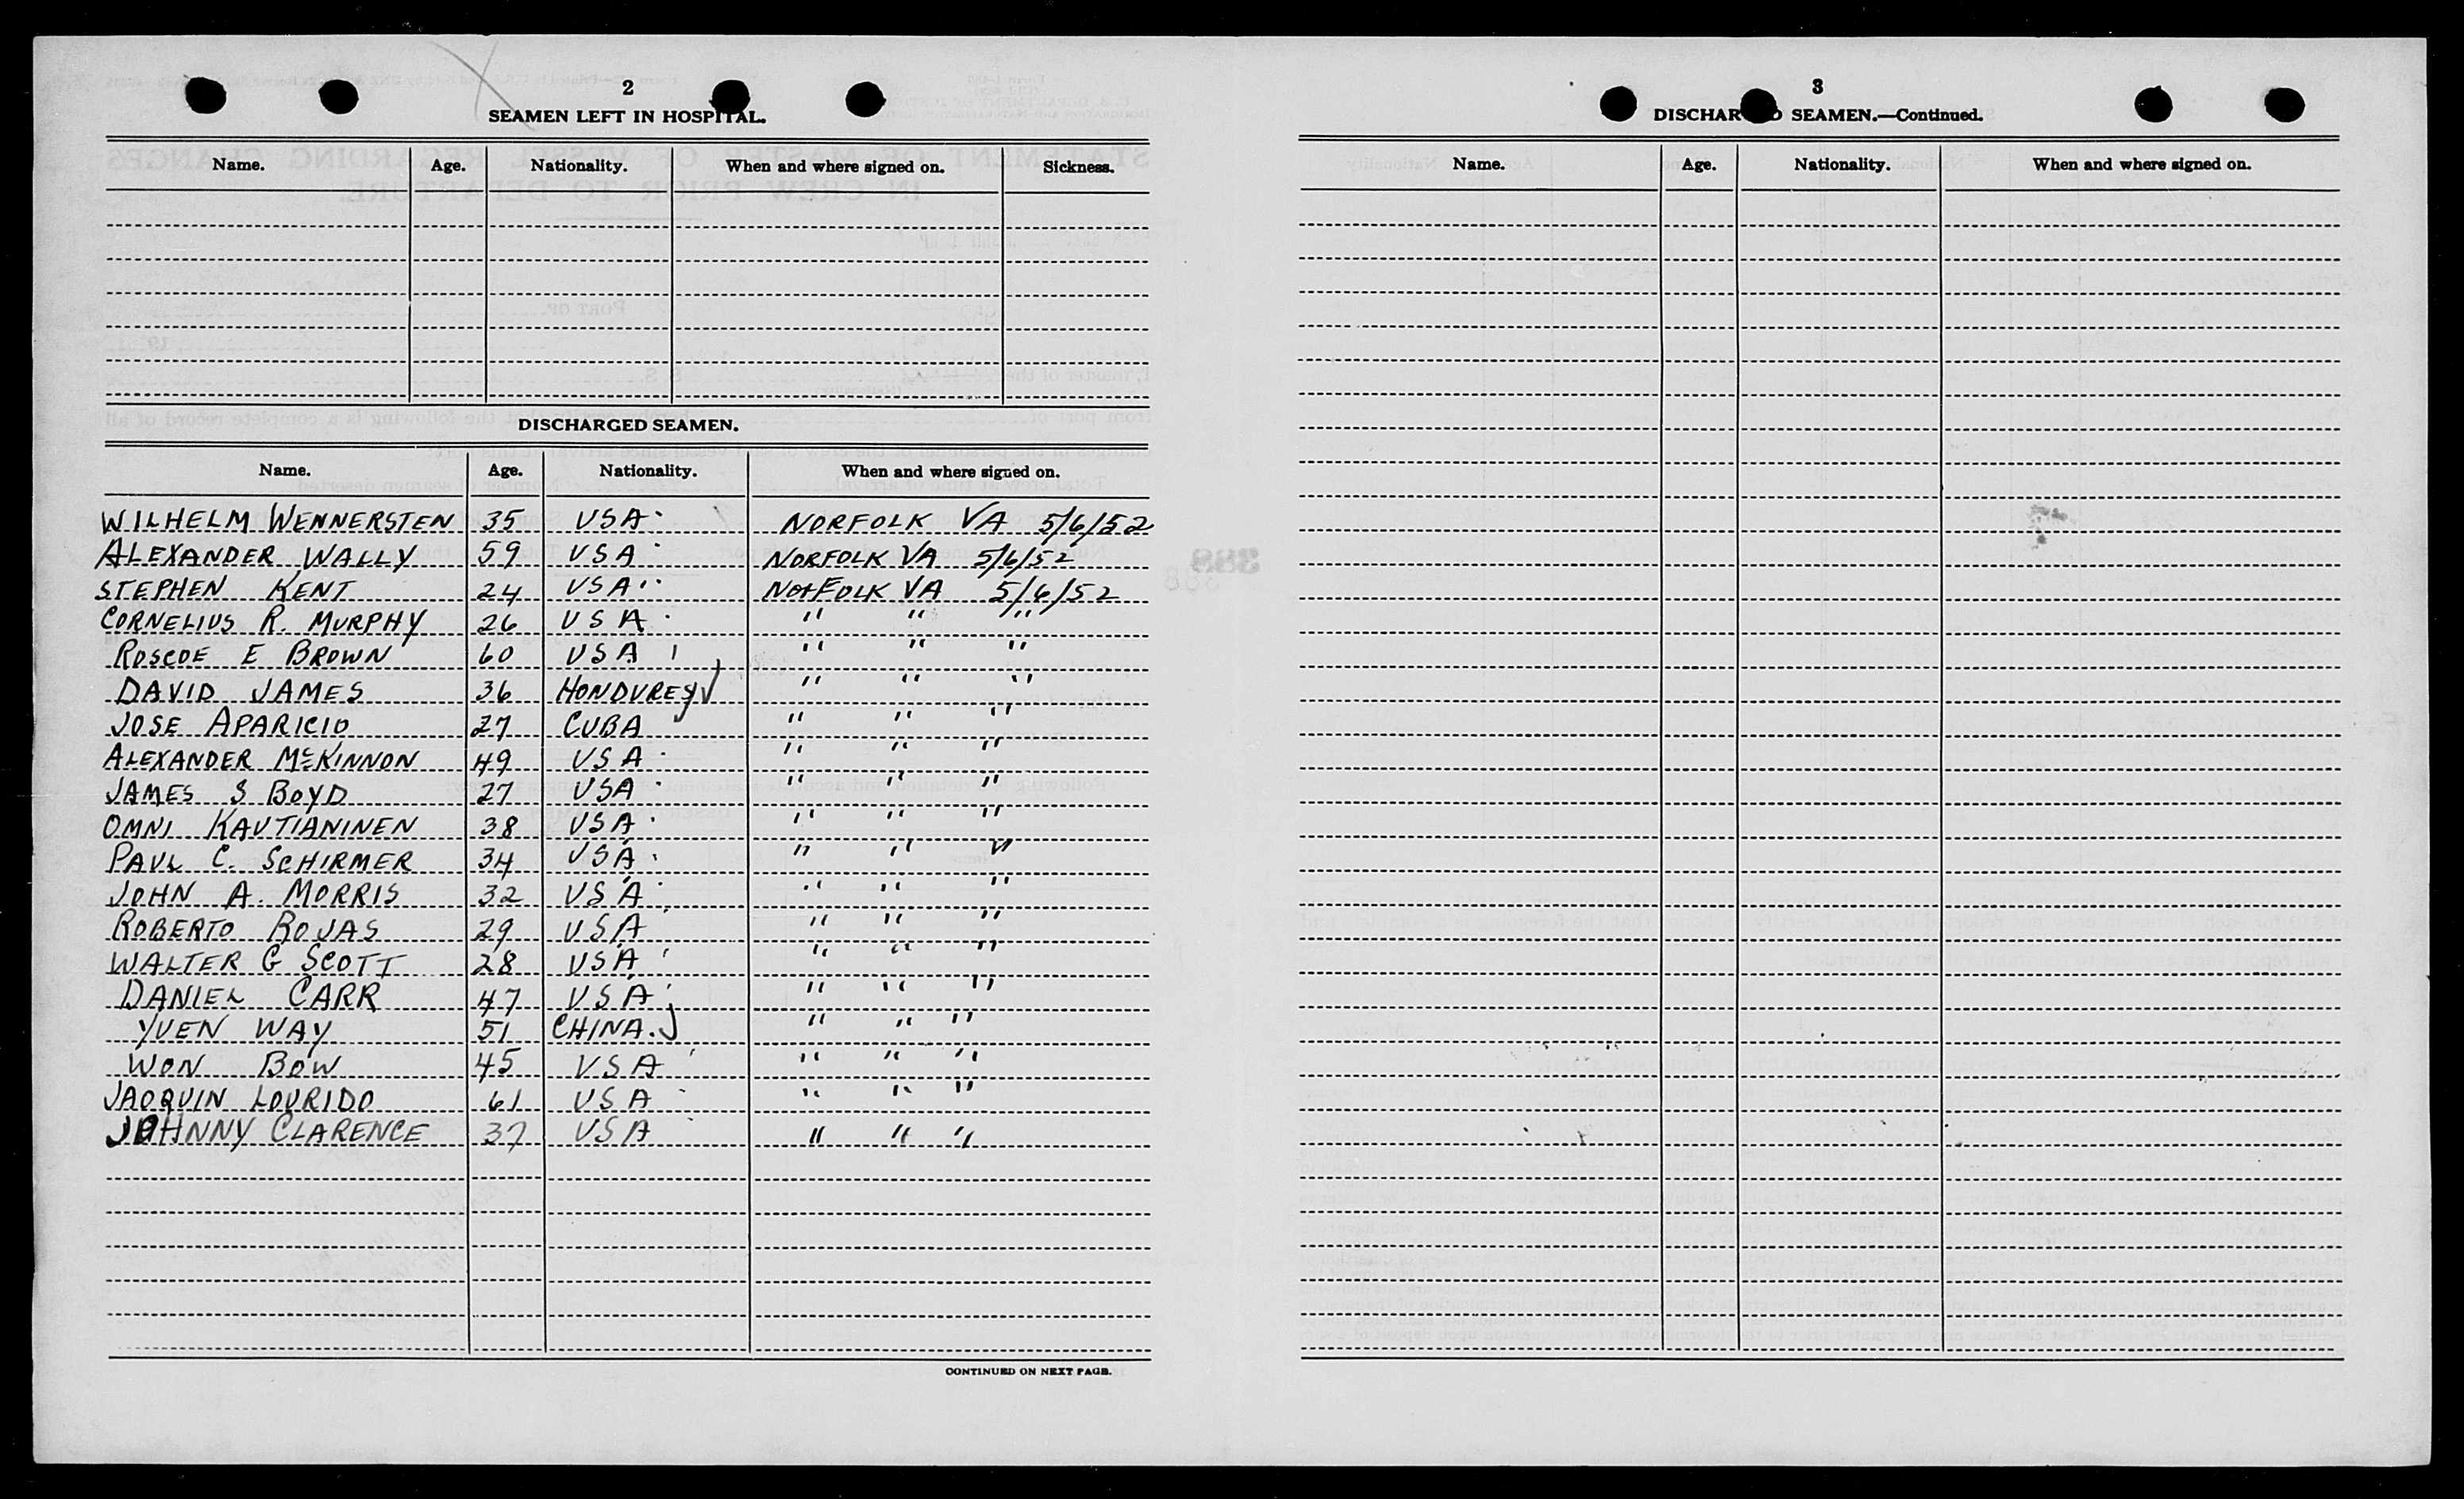 2
SEAMEN LEFT IN HOSPITAL.
Name. Age. Nationality. When and where signed on. Sickness.
DISCHARGED SEAMEN.
Name. Age. Nationality. When and where signed on.
WILHELM WENNERSTEN 35 USA NORFOLK VA 5/6/52
ALEXANDER WALLY 59 USA NORFOLK VA 5/6/52
STEPHEN KENT 24 USA NORFOLK VA 5/6/52
CORNELIUS R. MURPHY 26 USA " " "
ROSCOE E BROWN 60 USA " " "
DAVID JAMES 36 HONDURES " " "
JOSE APARICIO 27 CUBA " " "
ALEXANDER McKINNON 49 USA " " "
JAMES S BOYD 27 USA " " "
OMNI KAUTIANINEN 38 USA " " "
PAUL C. SCHIRMER 34 USA " " "
JOHN A. MORRIS 32 USA " " "
ROBERTO ROJAS 29 USA " " "
WALTER G SCOTT 28 USA " " "
DANIEL CARR 47 USA " " "
YUEN WAY 51 CHINA. " " "
WON BOW 45 USA " " "
JAOQUIN LOURIDO 61 USA " " "
JOHNNY CLARENCE 37 USA " " "
CONTINUED ON NEXT PAGE.
3
DISCHAR D SEAMEN.—Continued.
Name. Age. Nationality. When and where signed on.